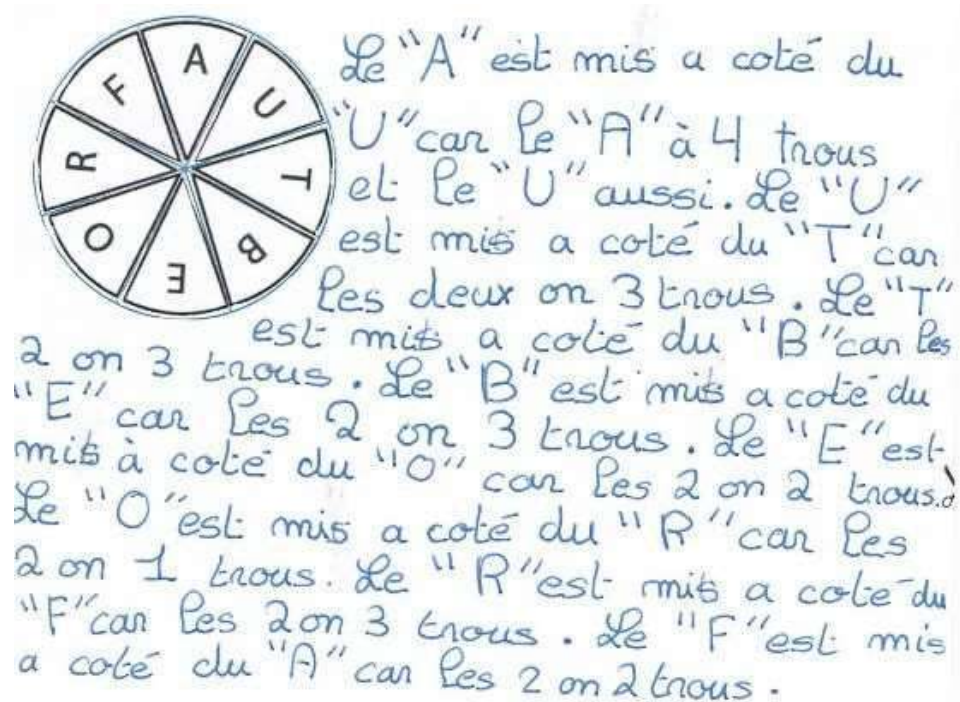 A
U
T
B
E
O
R
F
Le "A" est mis a coté du
"U" car le "A" à 4 trous
et le "U" aussi. Le "U"
est mis a coté du "T" car
les deux on 3 trous. Le "T"
est mis a coté du "B" car les
2 on 3 trous. Le "B" est mis a coté du
"E" car les 2 on 3 trous. Le "E" est
mis à coté du "O" car les 2 on 2 trous.
Le "O" est mis a coté du "R" car les
2 on 1 trous. Le "R" est mis a coté du
"F" car les 2 on 3 trous. Le "F" est mis
a coté du "A" car les 2 on 2 trous.